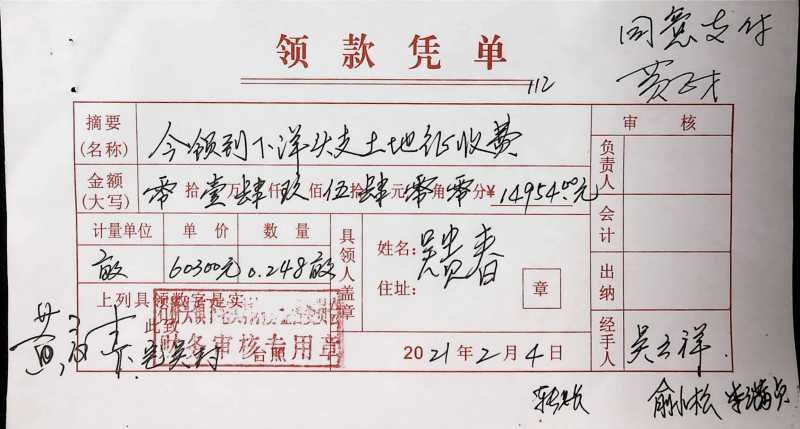 领款凭单
112
同意支付
摘要(名称) 今领到下洋头支土地征收费
金额(大写) 零拾壹万肆仟玖佰伍拾肆元零角零分¥14954.00元
审核
负责人
会计
出纳
经手人 吴立祥
计量单位 单价 数量
亩 60300元 0.248亩
具领人盖章
姓名: 吴贵春
住址:
章
上列具领数字是实
此致
台照
财务审核专用章
2021年2月4日
转长
俞小松